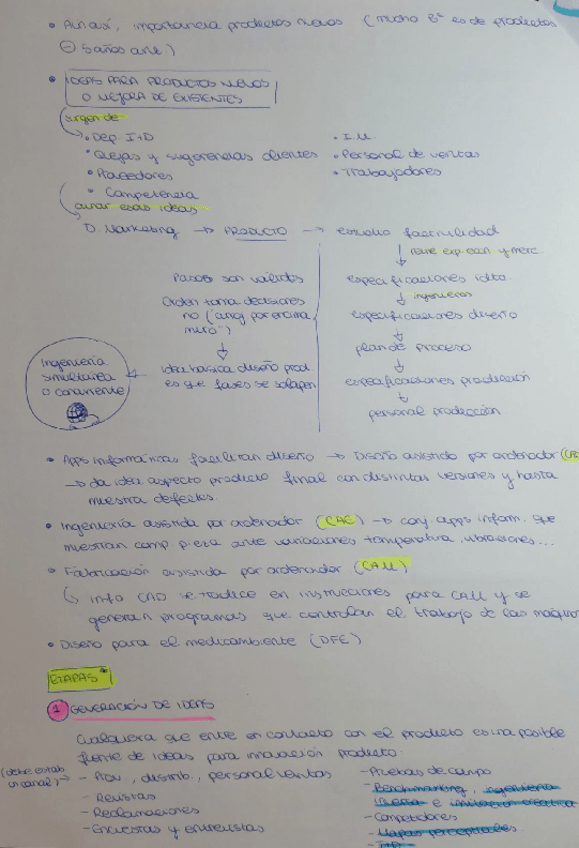 • Aun así, importancia productos nuevos (mucho Bº es de productos
⊖ 5 años ant.)
• IDEAS PARA PRODUCTOS NUEVOS
O MEJORA DE EXISTENTES
surgen de
• Dep. I+D
• Quejas y sugerencias clientes
• Proveedores
• Competencia
• I.M.
• Personal de ventas
• Trabajadores
aunar esas ideas
D. Marketing → PRODUCTO → estudio factibilidad
Pasos son válidos
Orden toma decisiones
no ("arroj por encima
muro")
↓
idea básica diseño prod
es que fases se solapen
Ingeniería
simultánea
o concurrente
↓ econ. y merc.
especificaciones idto.
↓ ingenieros
especificaciones diseño
↓
plan de proceso
↓
especificaciones producción
↓
personal producción
• Apps informáticas facilitan diseño → Diseño asistido por ordenador
→ da idea aspecto producto final con distintas versiones y hasta
muestra defectos.
• Ingeniería asistida por ordenador (CAE) → conj. apps inform. que
muestran comp. pieza ante variaciones temperatura, vibraciones...
• Fabricación asistida por ordenador (CAM)
↳ info CAD se traduce en instrucciones para CAM y se
generan programas que controlan el trabajo de las máquinas
• Diseño para el medioambiente (DFE)
ETAPAS*
1 GENERACIÓN DE IDEAS
Cualquiera que entre en contacto con el producto es una posible
fuente de ideas para innovación producto:
(debe estab.
un canal) →
- Prov., distrib., personal ventas
- Revistas
- Reclamaciones
- Encuestas y entrevistas
- Pruebas de campo
- Benchmarking, ingeniería
inversa e imitación creativa
- Competidores
- Mapas perceptuales.
- I+D